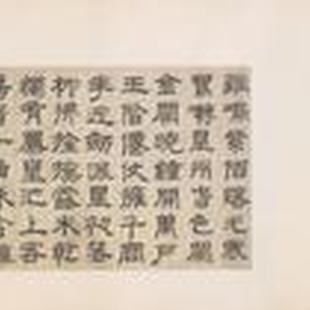 雞鳴紫陌曙光寒
鶯囀皇州春色闌
金闕曉鐘開萬戶
玉階僊仗擁千官
花迎劒珮星初落
柳拂旌旗露未乾
獨有鳳皇池上客
春一曲